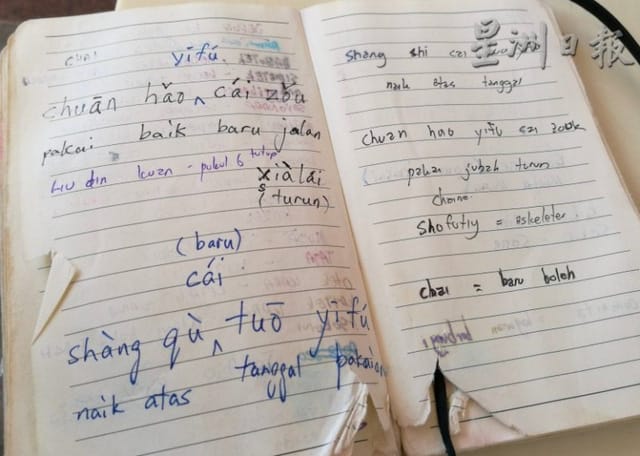 chai yīfú
chuān hǎo ^ cái zǒu
pakai baik baru jalan
Liu din kuan - pukul 6 tutup
xià lái
(turun)
(baru)
cái
shàng qù ^ tuō yīfú
naik atas tanggal pakaian
星洲日報
shang shi cai
naik atas tanggal
chuan hao yifu cai zouk
pakai jubah turun
choine
shofutiy = eskeleter
chai = baru boleh